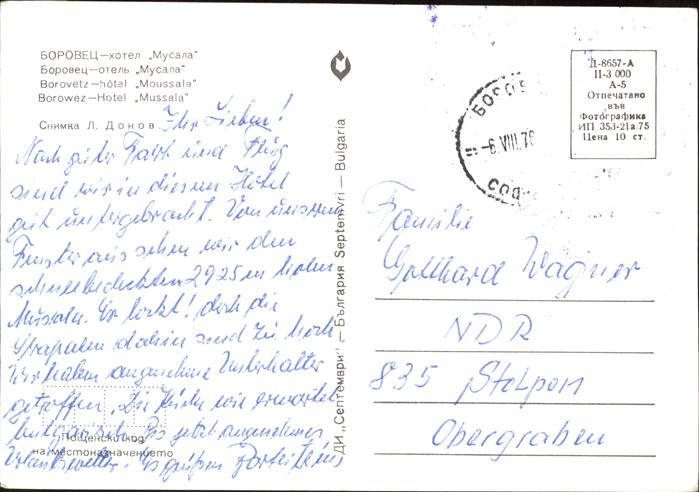 БОРОВЕЦ—хотел „Мусала“
Боровец—отель „Мусала“
Borovetz—hôtel „Moussala“
Borowez—Hotel „Mussala“
Снимка Л. Донов
Ihr Lieben!
Nach guter Fahrt und Flug
sind wir in diesem Hotel
gut untergebracht. Von unserem
Fenster aus sehen wir den
schneebedeckten 2925 m hohen
Mussala. Er lockt! doch die
Strapazen dahin sind zu hoch
Wir haben angenehme Unterhalter
getroffen. Die Küche wie erwartet
bulgarisch. Bis jetzt angenehmes
Urlaubswetter. Es grüßen
Пощенски код
на местоназначението
ДИ „Септември“ — България Septemvri — Bulgaria
БОРОВ
-6.VIII.76
Д-8657-А
II-3 000
А-5
Отпечатано
във
Фотографика
ИП 353-21а.75
Цена 10 ст.
Familie
Gotthard Wagner
NDR
835 Stolpen
Obergraben